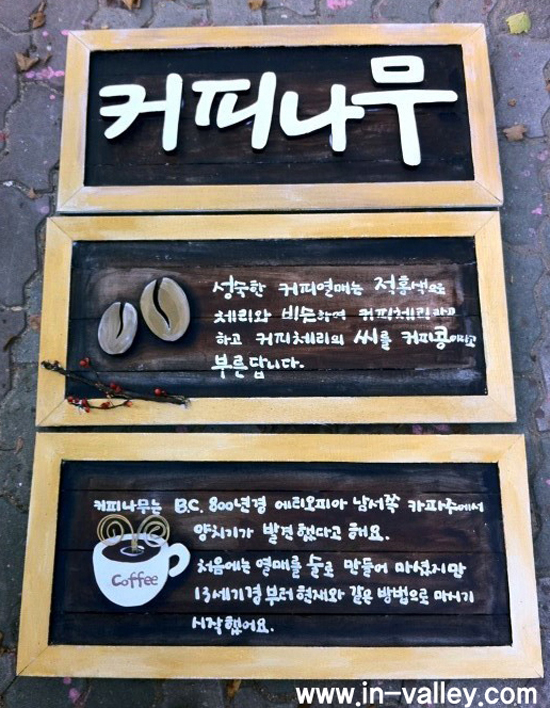 커피나무
성숙한 커피열매는 적홍색으로
체리와 비슷하며 커피체리라고
하고 커피체리의 씨를 커피콩이라고
부른답니다.
커피나무는 B.C. 800년경 에티오피아 남서쪽 카파주에서
양치기가 발견했다고 해요.
coffee
처음에는 열매를 술로 만들어 마셨지만
13세기경부터 현재와 같은 방법으로 마시기
시작했어요.
www.in-valley.com